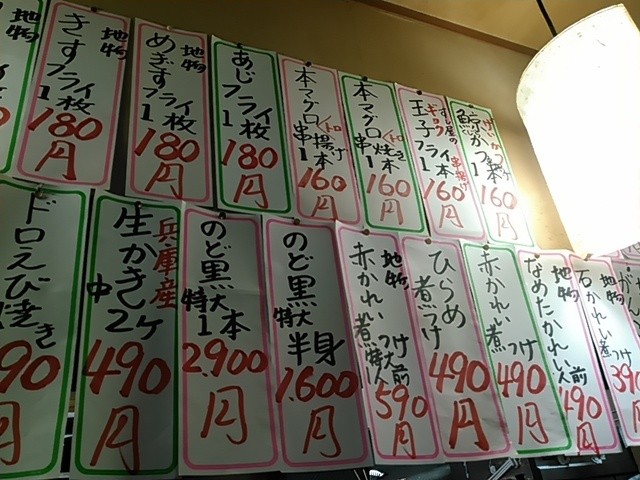 地物
きすフライ
1枚
180円
地物
めぎすフライ
1枚
180円
あじフライ
1枚
180円
本マグロ
トロ
串揚げ
1本
160円
本マグロ
トロ
串焼き
1本
160円
すし屋の
ギョク
玉子フライ
串揚げ
1本
160円
160円
ドロえび焼き
90円
兵庫産
生かき
中2ケ
490円
のど黒
特大
1本
2,900円
のど黒
特大
半身
1,600円
地物
赤かれい煮つけ
特大
1人前
590円
ひらめ
煮つけ
490円
赤かれい
煮つけ
490円
地物
なめたかれい
1人前
490円
地物
石かれい煮つけ
390円